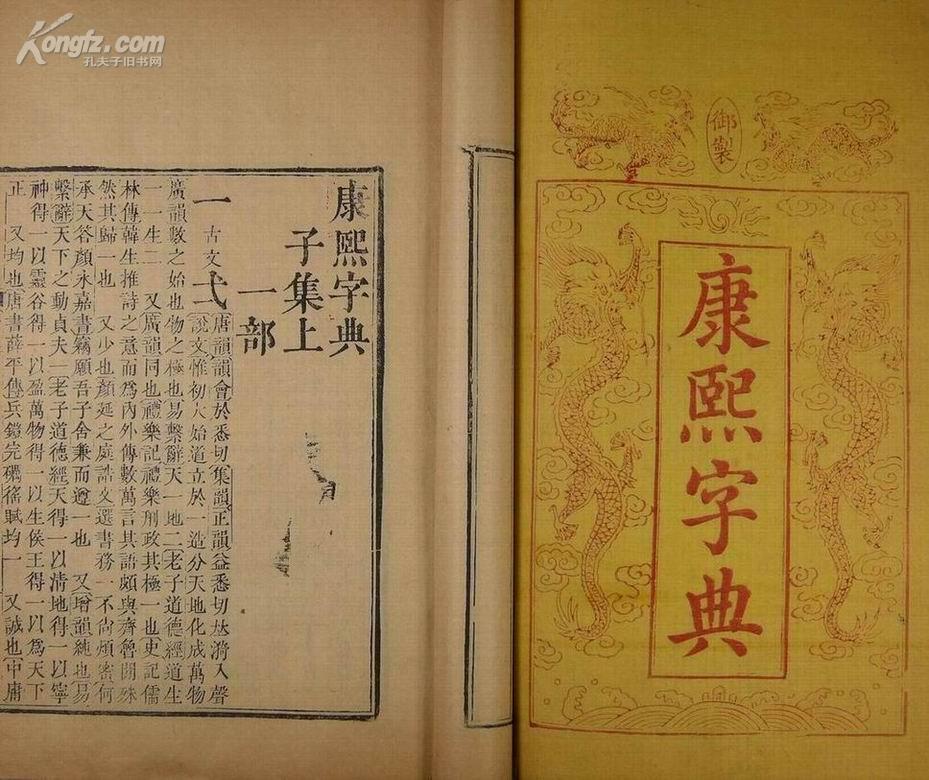 Kongfz.com
孔夫子旧书网
御製
康熙字典
康熙字典
子集上
一部
一 古文弌
唐韻韻會於悉切集韻正韻益悉切𠀤漪入聲
說文惟初大始道立於一造分天地化成萬物
廣韻數之始也物之極也易繫辭天一地二老子道德經道生
一一生二 又廣韻同也禮樂記禮樂刑政其極一也史記儒
林傳韓生推詩之意而爲內外傳數萬言其語頗與齊魯閒殊
然其歸一也 又少也顏延之庭誥文選書務一不尙煩密何
承天答顏永嘉書竊願吾子舍兼而遵一也 又增韻純也易
繫辭天下之動貞夫一老子道德經天得一以淸地得一以寧
神得一以靈谷得一以盈萬物得一以生侯王得一以爲天下
正 又均也唐書薛平傳兵鎧完礪徭賦均一 又誠也中庸